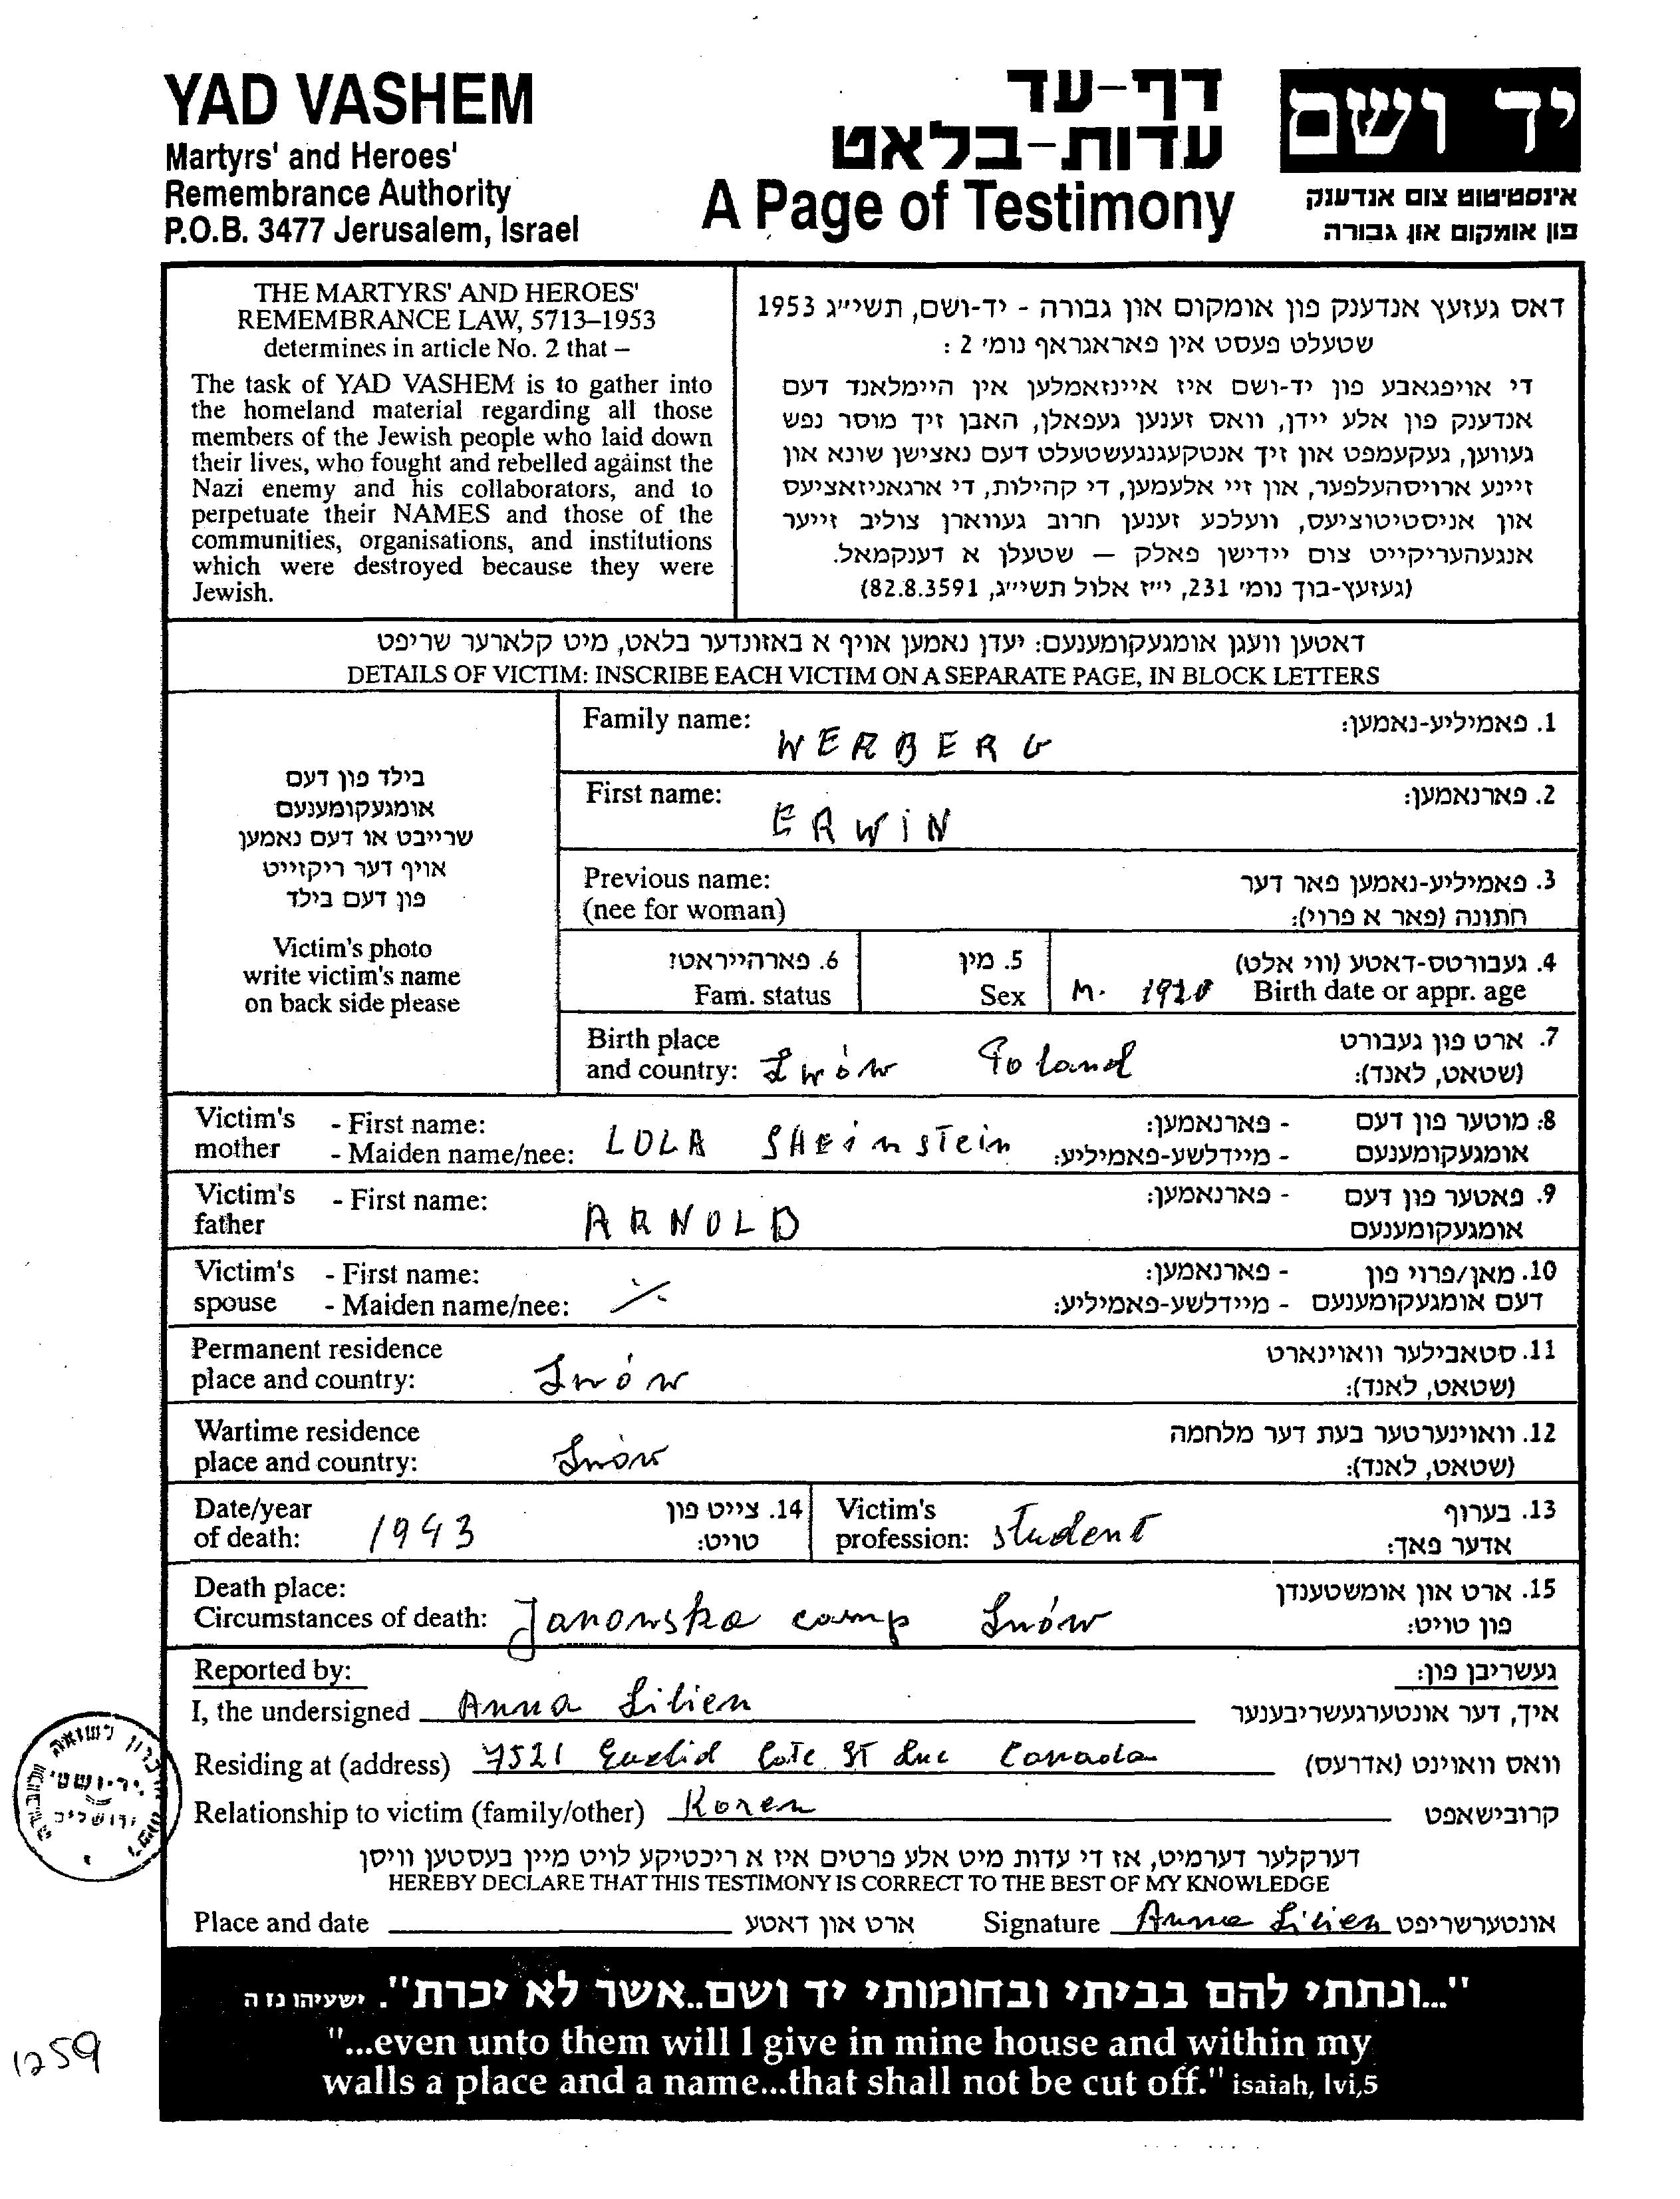 YAD VASHEM
Martyrs' and Heroes'
Remembrance Authority
P.O.B. 3477 Jerusalem, Israel
דף-עד
עדות-בלאט
A Page of Testimony
יד ושם
אינסטיטוט צום אנדענק
פון אומקום און גבורה
THE MARTYRS' AND HEROES'
REMEMBRANCE LAW, 5713–1953
determines in article No. 2 that –
The task of YAD VASHEM is to gather into
the homeland material regarding all those
members of the Jewish people who laid down
their lives, who fought and rebelled against the
Nazi enemy and his collaborators, and to
perpetuate their NAMES and those of the
communities, organisations, and institutions
which were destroyed because they were
Jewish.
דאס געזעץ אנדענק פון אומקום און גבורה - יד-ושם, תשי״ג 1953
שטעלט פעסט אין פאראגראף נומ׳ 2 :
די אויפגאבע פון יד-ושם איז איינזאמלען אין היימלאנד דעם
אנדענק פון אלע יידן, וואס זענען געפאלן, האבן זיך מוסר נפש
געווען, געקעמפט און זיך אנטקעגנגעשטעלט דעם נאצישן שונא און
זיינע ארויסהעלפער, און זיי אלעמען, די קהילות, די ארגאניזאציעס
און אניסטיטוציעס, וועלכע זענען חרוב געווארן צוליב זייער
אנגעהעריקייט צום יידישן פאלק — שטעלן א דענקמאל.
(געזעץ-בוך נומ׳ 231, י״ז אלול תשי״ג, 82.8.3591)
דאטען וועגן אומגעקומענעם: יעדן נאמען אויף א באזונדער בלאט, מיט קלארער שריפט
DETAILS OF VICTIM: INSCRIBE EACH VICTIM ON A SEPARATE PAGE, IN BLOCK LETTERS
בילד פון דעם
אומגעקומענעם
שרייבט אז דעם נאמען
אויף דער ריקזייט
פון דעם בילד
Victim's photo
write victim's name
on back side please
Family name: WERBERG 1. פאמיליע-נאמען:
First name: ERWIN 2. פארנאמען:
Previous name: 3. פאמיליע-נאמען פאר דער
(nee for woman) חתונה (פאר א פרוי):
6. פארהייראט? 5. מין 4. געבורטס-דאטע (ווי אלט)
Fam. status Sex M. 1920 Birth date or appr. age
Birth place 7. ארט פון געבורט
and country: Lwów Poland (שטאט, לאנד):
Victim's - First name: - פארנאמען: 8: מוטער פון דעם
mother - Maiden name/nee: LOLA SHEinstein - מיידלשע-פאמיליע: אומגעקומענעם
Victim's - First name: - פארנאמען: 9. פאטער פון דעם
father ARNOLD אומגעקומענעם
Victim's - First name: - פארנאמען: 10. מאן/פרוי פון
spouse - Maiden name/nee: - מיידלשע-פאמיליע: דעם אומגעקומענעם
Permanent residence 11. סטאבילער וואוינארט
place and country: Lwów (שטאט, לאנד):
Wartime residence 12. וואוינערטער בעת דער מלחמה
place and country: Lwów (שטאט, לאנד):
Date/year 14. צייט פון Victim's 13. בערוף
of death: 1943 טויט: profession: student אדער פאך:
Death place: 15. ארט און אומשטענדן
Circumstances of death: Janowska camp Lwów פון טויט:
Reported by: געשריבן פון:
I, the undersigned Anna Lilien איך, דער אונטערגעשריבענער
Residing at (address) 7521 Euclid Cote St Luc Canada וואס וואוינט (אדרעס)
Relationship to victim (family/other) Koren קרובישאפט
דערקלער דערמיט, אז די עדות מיט אלע פרטים איז א ריכטיקע לויט מיין בעסטען וויסן
HEREBY DECLARE THAT THIS TESTIMONY IS CORRECT TO THE BEST OF MY KNOWLEDGE
Place and date ארט און דאטע Signature Anna Lilien אונטערשריפט
"...ונתתי להם בביתי ובחומותי יד ושם..אשר לא יכרת". ישעיהו נז ה
"...even unto them will I give in mine house and within my
walls a place and a name...that shall not be cut off." isaiah, lvi,5
1259